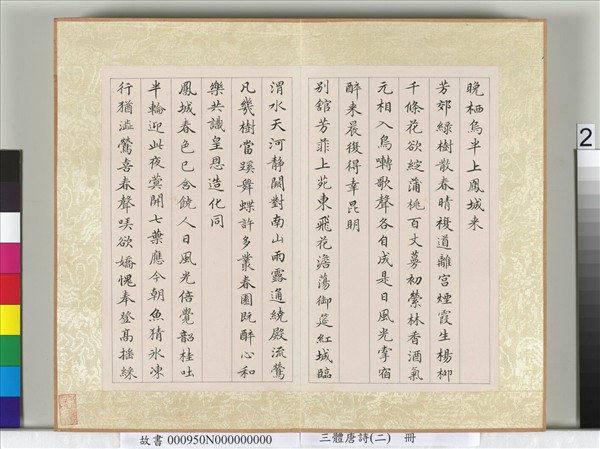 晚栖烏半上鳳城来
芳郊緑樹散春晴複道離宮煙霞生楊柳
千條花欲綻蒲桃百丈蔓初縈林香酒氣
元相入鳥囀歌聲各自成是日風光牽宿
醉来晨復得幸昆明
别舘芳菲上苑東飛花澹蕩御筵紅城臨
渭水天河静闕對南山雨露通繞殿流鶯
凡幾樹當蹊舞蝶許多叢春園既醉心和
樂共識皇恩造化同
鳳城春色已含饒人日風光倍覺韶桂吐
半輪迎此夜蓂開七葉應今朝魚猜氷凍
行猶澁鶯喜春聲啖欲嬌愧奉登髙摇綵
故書 000950N000000000 三體唐詩(二) 冊
2